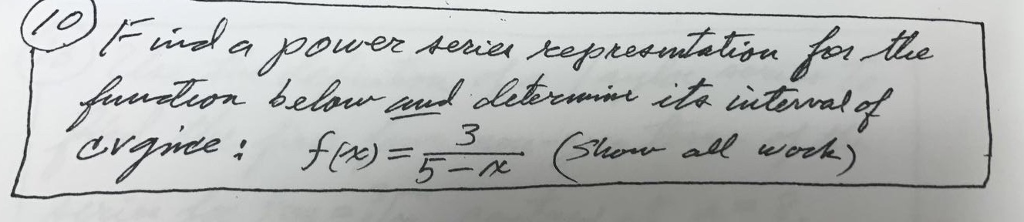 10 Find a power series representation for the
function below and determine its interval of
cvgnce: f(x) = 3/(5-x) (Show all work)